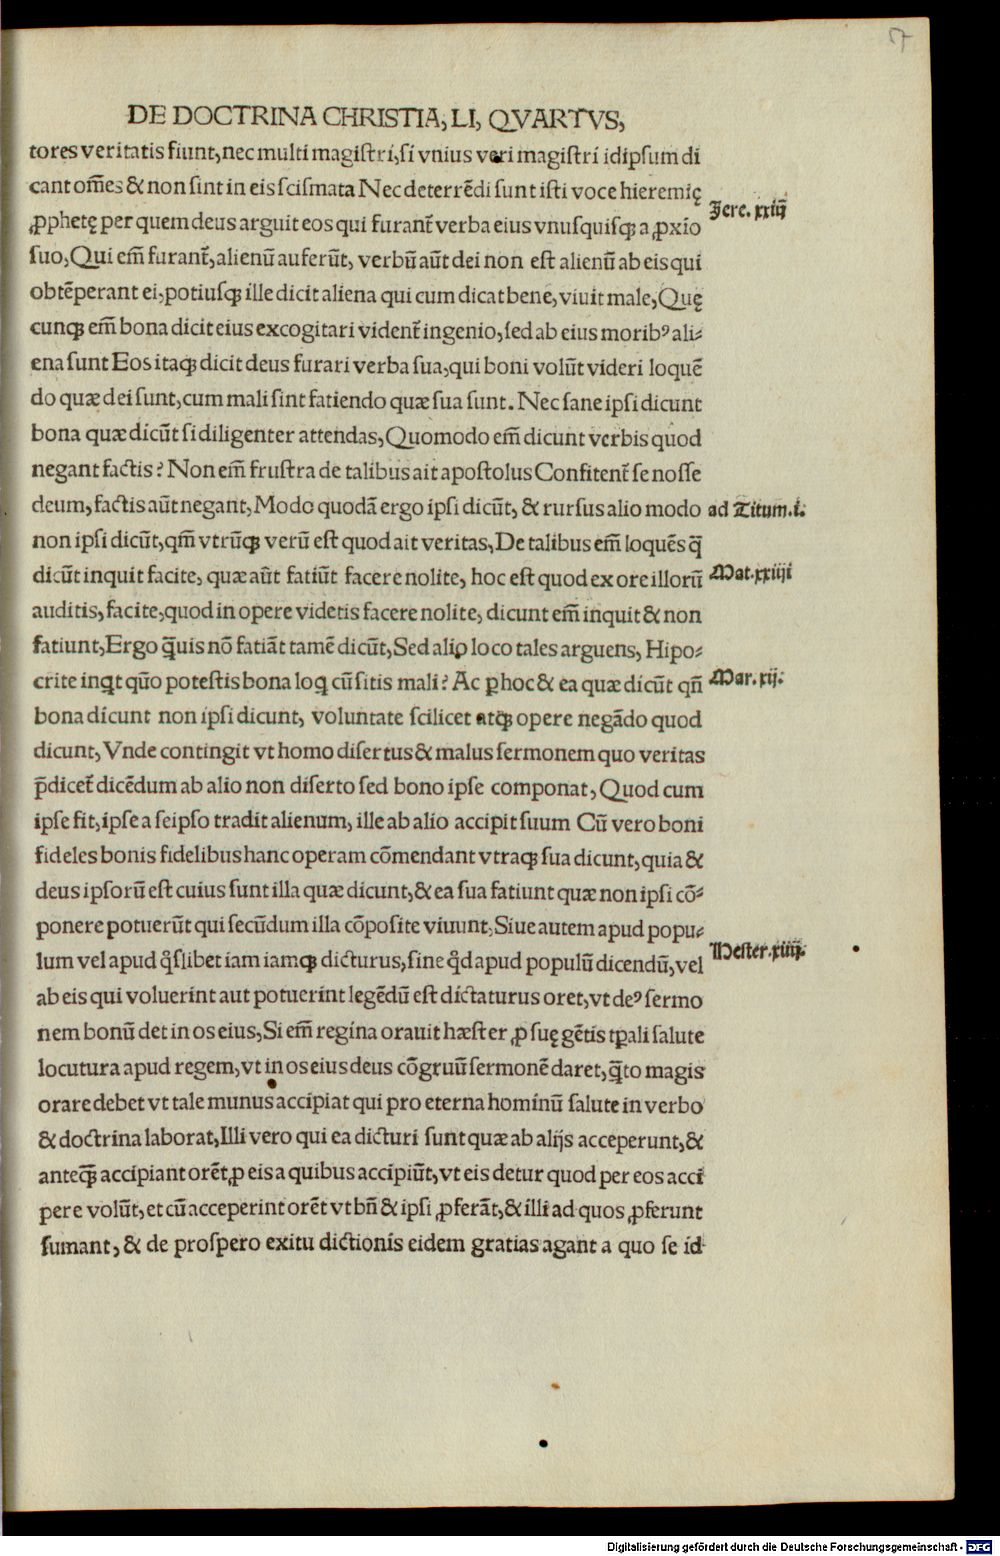 57
DE DOCTRINA CHRISTIA, LI, QVARTVS,
tores veritatis fiunt, nec multi magiſtri, ſi vnius veri magiſtri idipſum di
cant om̄es & non ſint in eis ſciſmata Nec deterrēdi ſunt iſti voce hieremię
ꝓphetę per quem deus arguit eos qui furant̃ verba eius vnuſquiſqꝫ a ꝓxīo
ſuo, Qui em̄ furant̃, alienū auferūt, verbū aūt dei non eſt alienū ab eis qui
obtēperant ei, potiuſqꝫ ille dicit aliena qui cum dicat bene, viuit male, Quę
cunqꝫ em̄ bona dicit eius excogitari vident̃ ingenio, ſed ab eius moribꝰ ali⸗
ena ſunt Eos itaqꝫ dicit deus furari verba ſua, qui boni volūt videri loquē
do quæ dei ſunt, cum mali ſint fatiendo quæ ſua ſunt. Nec ſane ipſi dicunt
bona quæ dicūt ſi diligenter attendas, Quomodo em̄ dicunt verbis quod
negant factis? Non em̄ fruſtra de talibus ait apoſtolus Confitent̃ ſe noſſe
deum, factis aūt negant, Modo quodā ergo ipſi dicūt, & rurſus alio modo
non ipſi dicūt, qm̄ vtrūqꝫ verū eſt quod ait veritas, De talibus em̄ loquēs q̄
dicūt inquit facite, quæ aūt fatiūt facere nolite, hoc eſt quod ex ore illorū
auditis, facite, quod in opere videtis facere nolite, dicunt em̄ inquit & non
fatiunt, Ergo q̄uis nō fatiāt tamē dicūt, Sed alio loco tales arguens, Hipo⸗
crite inqt quō poteſtis bona loq cū ſitis mali? Ac ꝑ hoc & ea quæ dicūt qn̄
bona dicunt non ipſi dicunt, voluntate ſcilicet atqꝫ opere negādo quod
dicunt, Vnde contingit vt homo diſertus & malus ſermonem quo veritas
p̄dicet̃ dicēdum ab alio non diſerto ſed bono ipſe componat, Quod cum
ipſe fit, ipſe a ſeipſo tradit alienum, ille ab alio accipit ſuum Cū vero boni
fideles bonis fidelibus hanc operam cōmendant vtraqꝫ ſua dicunt, quia &
deus ipſorū eſt cuius ſunt illa quæ dicunt, & ea ſua fatiunt quæ non ipſi cō⸗
ponere potuerūt qui ſecūdum illa cōpoſite viuunt, Siue autem apud popu⸗
lum vel apud qͦſlibet iam iamqꝫ dicturus, ſine qͦd apud populū dicendū, vel
ab eis qui voluerint aut potuerint legēdū eſt dictaturus oret, vt deꝰ ſermo
nem bonū det in os eius, Si em̄ regina orauit hæſter ꝓ ſuę gētis tꝑali ſalute
locutura apud regem, vt in os eius deus cōgruū ſermonē daret, q̄to magis
orare debet vt tale munus accipiat qui pro eterna hominū ſalute in verbo
& doctrina laborat, Illi vero qui ea dicturi ſunt quæ ab alijs acceperunt, &
anteqꝫ̄ accipiant orēt ꝓ eis a quibus accipiūt, vt eis detur quod per eos acci
pere volūt, et cū acceperint orēt vt bn̄ & ipſi ꝓferāt, & illi ad quos ꝓferunt
ſumant, & de proſpero exitu dictionis eidem gratias agant a quo ſe id
Jere. xxiij
ad Titum. i.
Mat. xxiiii
Mar. xij.
Hester. xiiij.
Digitalisierung gefördert durch die Deutsche Forschungsgemeinschaft - DFG